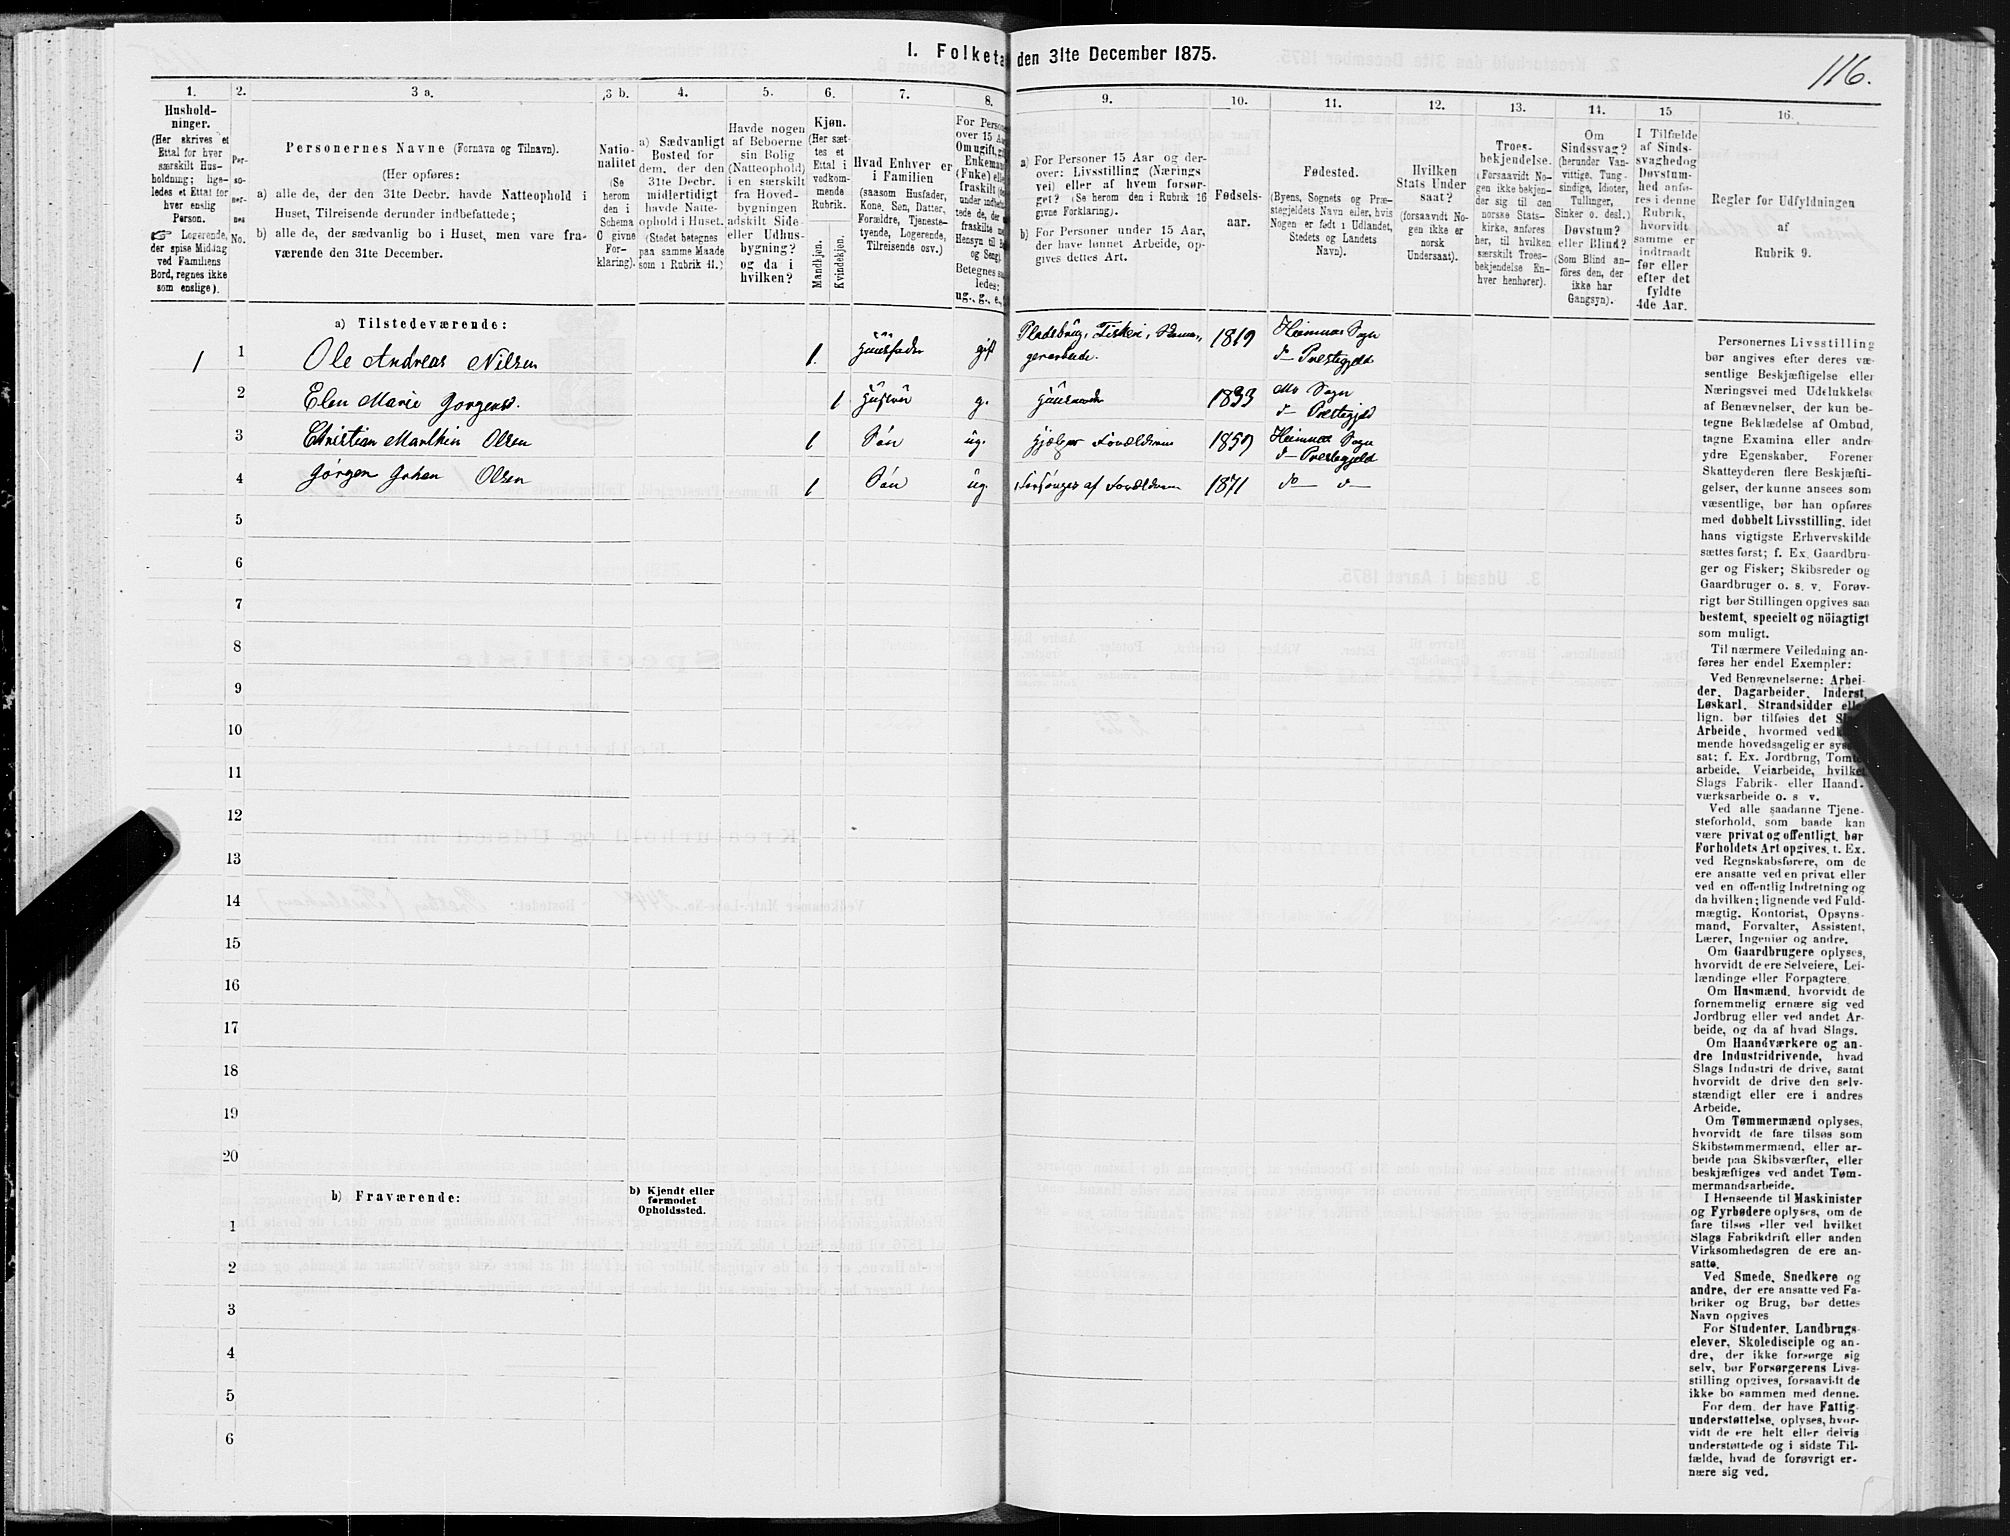 1. Folketa den 31te December 1875.
116.
1.
2.
3 a.
3 b.
4.
5.
6.
7.
8.
9.
10.
11.
12.
13.
14.
15
16.
Hushold-
ninger.
(Her skrives et
Ettal for hver
særskilt Hus-
holdning; lige-
ledes et Ettal for
hver enslig
Person.
☞ Logerende,
der spise Middag
ved Familiens
Bord, regnes ikke
som enslige).
Per-
so-
ner-
nes
No.
Personernes Navne (Fornavn og Tilnavn).
(Her opføres:
a) alle de, der den 31te Decbr. havde Natteophold i
Huset, Tilreisende derunder indbefattede;
b) alle de, der sædvanlig bo i Huset, men vare fra-
værende den 31te December.
Natio-
nalitet
(Se
herom
den i
Schema
0 givne
For-
klaring).
a) Sædvanligt
Bosted for
dem, der den
31te Decbr.
midlertidigt
havde Natte-
ophold i Huset.
(Stedet betegnes
paa samme Maade
som i Rubrik 11.)
Havde nogen
af Beboerne
sin Bolig
(Natteophold)
i en særskilt
fra Hoved-
bygningen
adskilt Side-
eller Udhus-
bygning?
og da i
hvilken?
Kjøn.
(Her sæt-
tes et
Ettal i
vedkom-
mende
Rubrik.
Mandkjøn.
Kvindekjøn.
Hvad Enhver er
i Familien
(saasom Husfader,
Kone, Søn, Datter,
Forældre, Tjeneste-
tyende, Logerende,
Tilreisende osv.)
For Persone
over 15 Aa
Om ugift, gi
Enkeman
(Fnke) elle
fraskilt
Betegnes s
ledes:
ug., g., e.,
a) For Personer 15 Aar og der-
over: Livsstilling (Nærings
vei) eller af hvem forsør-
get? (Se herom den i Rubrik 16
givne Forklaring).
b) For Personer under 15 Aar,
der have lønnet Arbeide, op-
gives dettes Art.
Fødsels-
aar.
Fødested.
(Byens, Sognets og Præ-
stegjeldets Navn eller, hvis
Nogen er født i Udlandet,
Stedets og Landets
Navn).
Hvilken
Stats Under
saat?
(forsaavidt No-
gen ikke er
norsk
Undersaat).
Troes-
bekjendelse.
(Forsaavidt No-
gen ikke bekjen-
der sig til den
norske Stats-
kirke, anføres
her, til hvilken
særskilt Troes-
bekjendelse En-
hver henhører).
Om
Sindssvag?
(herunder Van-
vittige, Tung-
sindige, Idioter,
Tullinger,
Sinker o. desl.)
Døvstum?
eller Blind?
(Som Blind an-
føres den, der
ikke har
Gangsyn).
I Tilfælde
af Sinds-
svaghedog
Døvstum-
hed anfø-
res i denne
Rubrik,
hvorvidt
samme er
indtraadt
før eller
efter det
fyldte
4de Aar.
Regler for Udfyldningen
af
Rubrik 9.
a) Tilstedeværende:
1 1 Ole Andreas Nilsen 1. Huusfader gift Pladsbrug, Fiskeri, 1819 Hemnæs Sogn
gerarbeide. do Præstegjeld
2 Elen Marie Jørgensd. 1 Hustru g. 1833 Mo Sogn
do Præstegjeld
3 Christian Marthin Olsen 1 Søn ug. Hjælper Forældrene 1859 Hemnæs Sogn
do Præstegjeld
4 Jørgen Johan Olsen 1 Søn ug. Forsørges af Forældrene 1871 do do
5
6
7
8
9
10
11
12
13
14
15
16
17
18
19
20
b) Fraværende:
b) Kjendt eller
formodet
Opholdssted.
1
2
3
4
5
6
Personernes Livsstilling
bør angives efter deres væ-
sentlige Beskjæftigelse eller
Næringsvei med Udelukkelse
af Benævnelser, der kun be-
tegne Beklædelse af Ombud,
tagne Examina eller andre
ydre Egenskaber. Forener
Skatteyderen flere Beskjæfti-
gelser, der kunne ansees som
væsentlige, bør han opføres
med dobbelt Livsstilling, idet
hans vigtigste Erhvervskilde
sættes først; f. Ex. Gaardbru-
ger og Fisker; Skibsreder og
Gaardbruger o. s. v. Forøv-
rigt bør Stillingen opgives saa
bestemt, specielt og nöiagtigt
som muligt.
Til nærmere Veiledning an-
føres her endel Exempler:
Ved Benævnelserne: Arbei-
der, Dagarbeider, Inderst,
Løskarl, Strandsidder elle
lign. bør tilføies det Sl
Arbeide, hvormed ved
mende hovedsagelig er sys
sat; f. Ex. Jordbrug, Tomte
arbeide, Veiarbeide, hvilket
Slags Fabrik- eller Haand-
værksarbeide o. s v.
Ved alle saadanne Tjene-
steforhold, som baade kan
være privat og offentligt, bør
Forholdets Art opgives, t. Ex.
ved Regnskabsførere, om de
ere ansatte ved en privat eller
ved en offentlig Indretning og
da hvilken; lignende ved Fuld-
mægtig, Kontorist, Opsyns-
mand, Forvalter, Assistent,
Lærer, Ingeniør og andre.
Om Gaardbrugere oplyses,
hvorvidt de ere Selveiere, Lei-
lændinge eller Forpagtere.
Om Husmænd, hvorvidt de
fornemmelig ernære sig ved
Jordbrug eller ved andet Ar-
beide, og da af hvad Slags.
Om Haandværkere og an-
dre Industridrivende, hvad
Slags Industri de drive, samt
hvorvidt de drive den selv-
stændigt eller ere i andres
Arbeide.
Om Tømmermænd oplyses,
hvorvidt de fare tilsøs som
Skibstømmermænd, eller ar-
beide paa Skibsværfter, eller
beskjæftiges ved andet Tøm-
mermandsarbeide.
I Henseende til Maskinister
og Fyrbødere oplyses, om de
fare tilsøs eller ved hvilket
Slags Fabrikdrift eller anden
Virksomhedsgren de ere an-
satte.
Ved Smede, Snedkere og
andre, der ere ansatte ved Fa-
briker og Brug, bør dettes
Navn opgives
For Studenter, Landbrugs-
elever, Skoledisciple og an-
dre, der ikke forsørge sig
selv, bør Forsørgerens Livs-
stilling opgives, forsaavidt de
ikke bo sammen med denne.
For dem, der have Fattig-
understøttelse, oplyses, hvor-
vidt de ere helt eller delvis
understøttede og i sidste Til-
fælde, hvad de forøvrigt er-
nære sig ved.